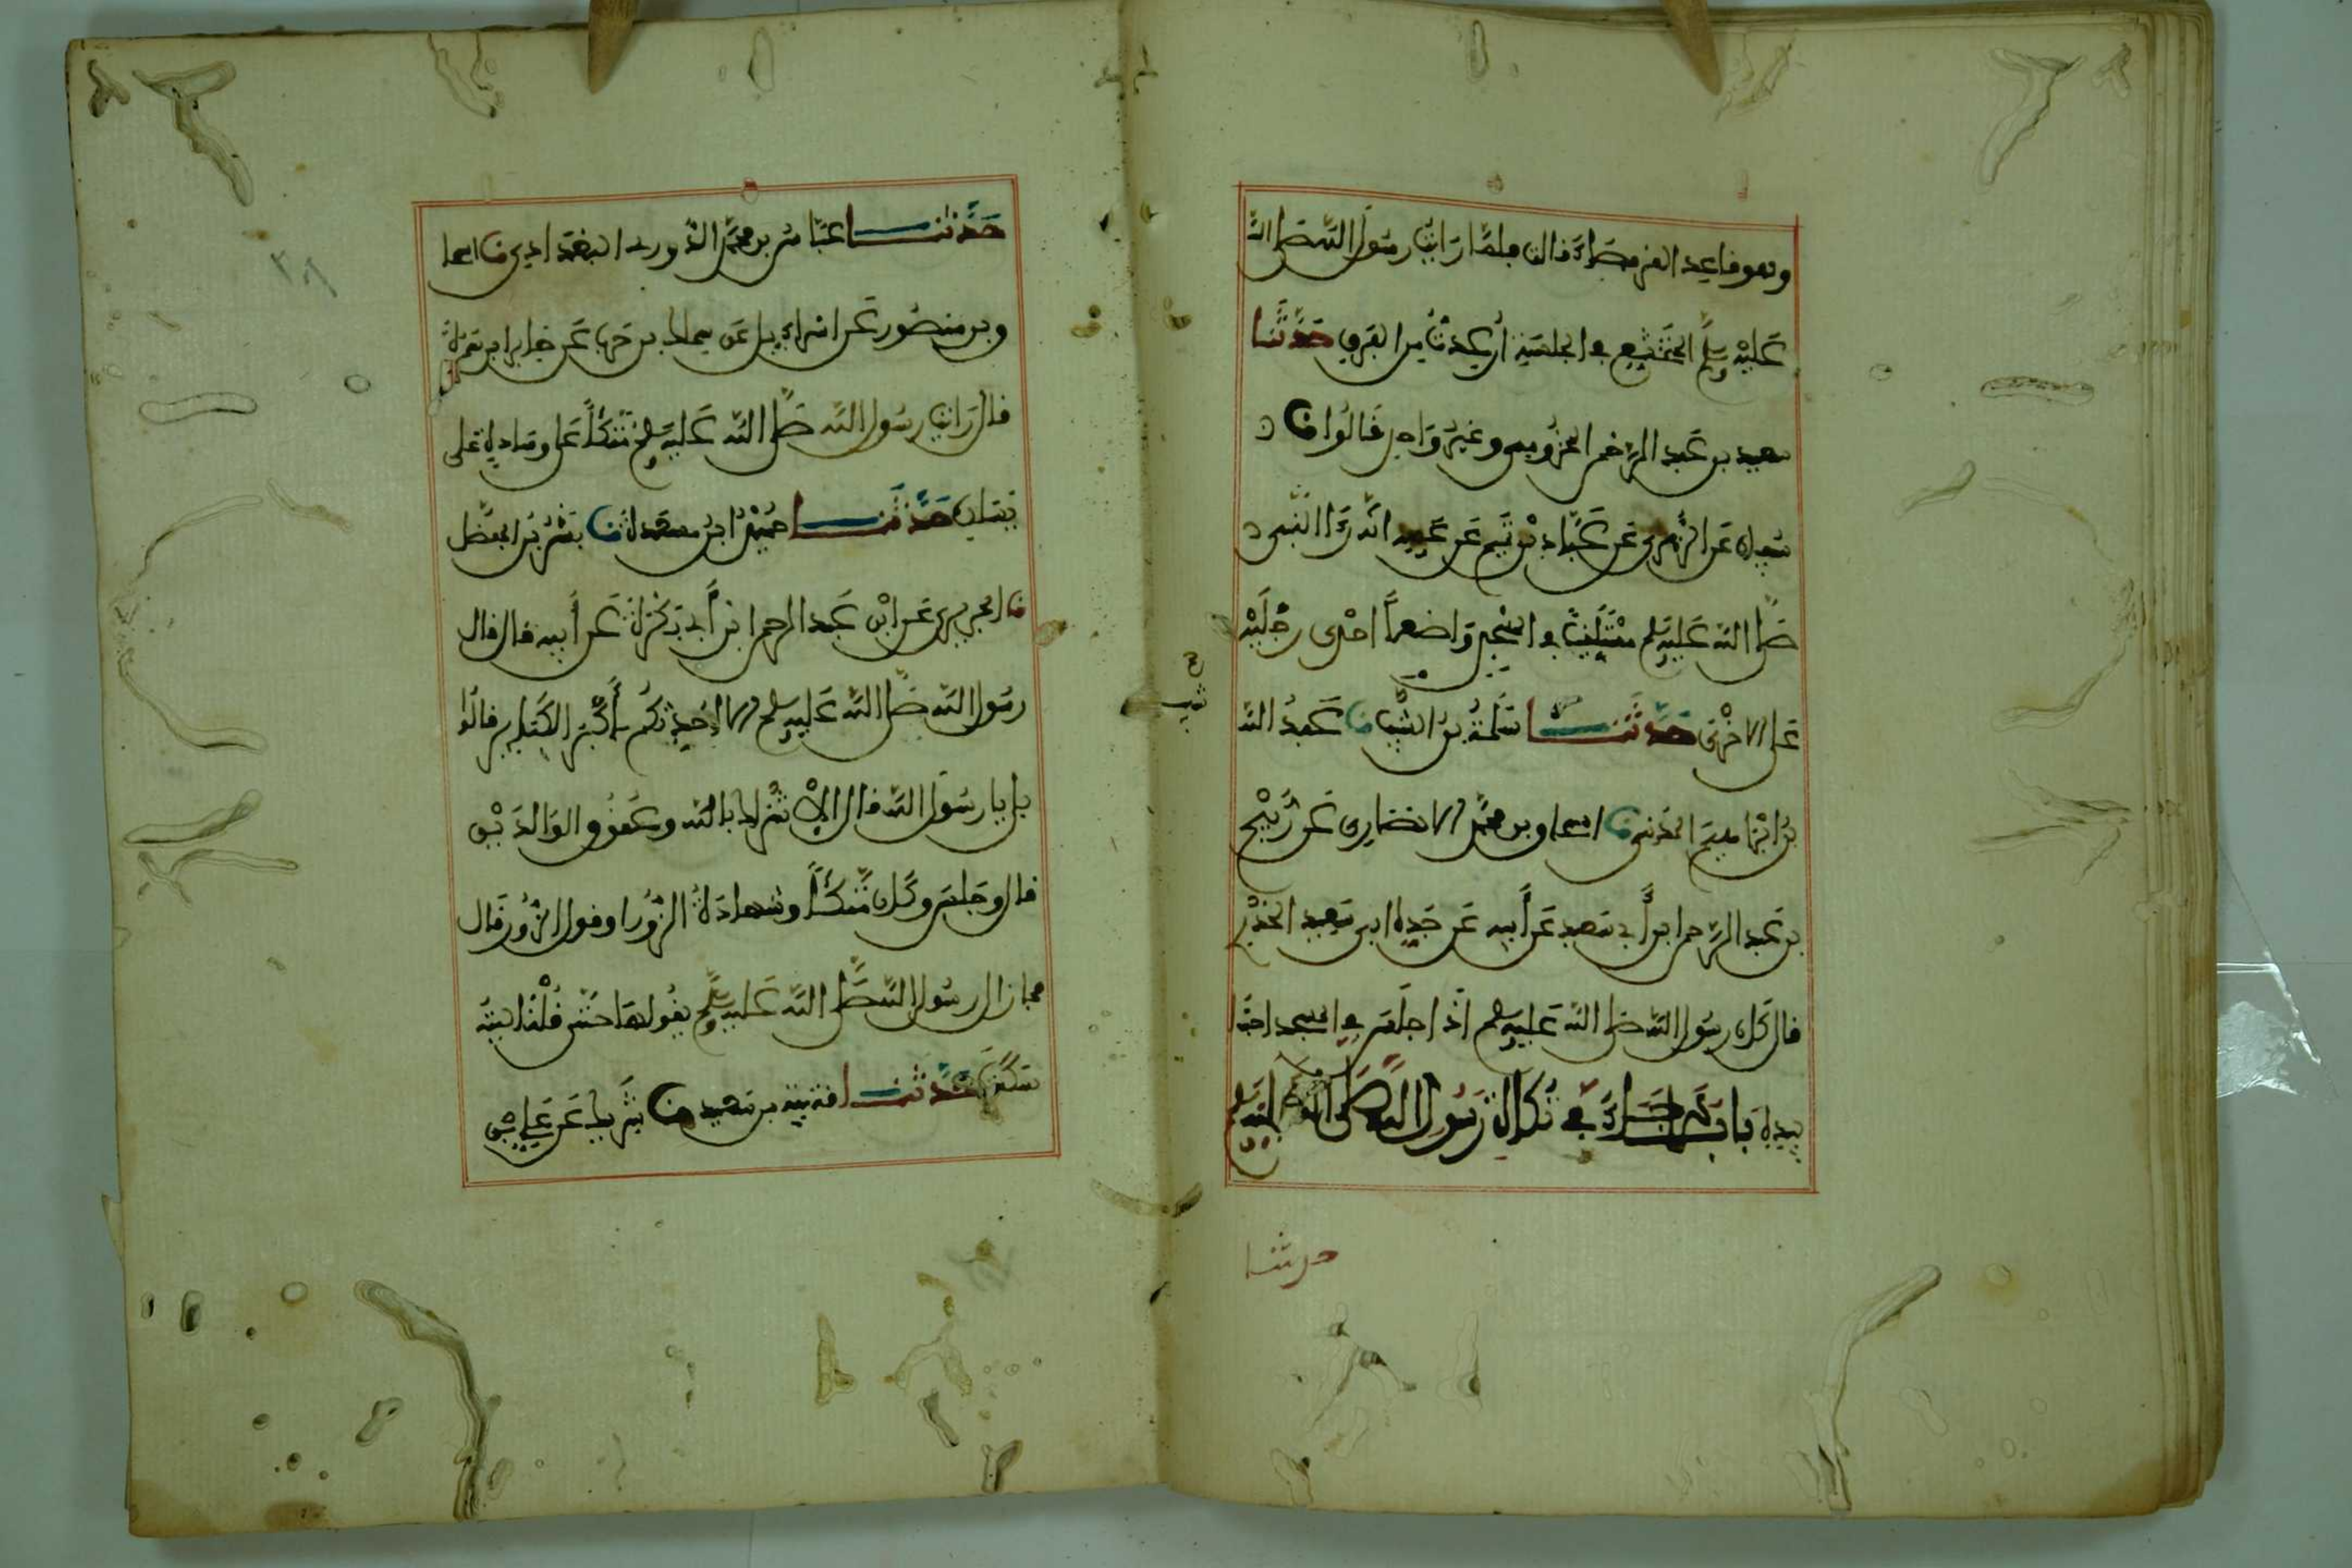 وهو قاعد القرفصاء قالت فلما رايت رسول الله صلى الله
عليه وسلم المتخشع في الجلسة أرعدت من الفرق حدثنا
سعيد بن عبد الرحمن المخزومي وغير واحد قالوا نا
سفيان عن الزهري عن عباد بن تميم عن عمه انه رءا النبي
صلى الله عليه وسلم مستلقيا في المسجد واضعا احدى رجليه
على الاخرى حدثنا سلمة بن شبيب نا عبد الله
بن ابراهيم المدني نا اسحاق بن محمد الانصاري عن ربيح
بن عبد الرحمن ابن أبي سعيد عن أبيه عن جده ابي سعيد الخدر
قال كان رسول الله صلى الله عليه وسلم اذا جلس في المسجد احتبا
بيديه باب ما جاء في تكاة رسول الله صلى الله عليه وسلم
حدثنا
حدثنا عباس بن محمد الدوري البغدادي نا اسحا
ق بن منصور عن اسراءيل عن سماك بن حرب عن جابر ابن سمرة
قال رايت رسول الله صلى الله عليه وسلم متكئا على وسادة على
يساره حدثنا حميد ابن مسعدة نا بشر بن المفضل
نا الجريري عن ابن عبد الرحمن ابن أبي بكرة عن أبيه قال قال
رسول الله صلى الله عليه وسلم الا احدثكم بأكبر الكبائر قالوا
بلى يا رسول الله قال الاشراك بالله وعقوق الوالدين
قال وجلس وكان متكئا وشهادة الزور او قول الزور قال
فما زال رسول الله صلى الله عليه وسلم يقولها حتى قلنا ليته
سكت حدثنا قتيبة بن سعيد نا شريك عن علي بن